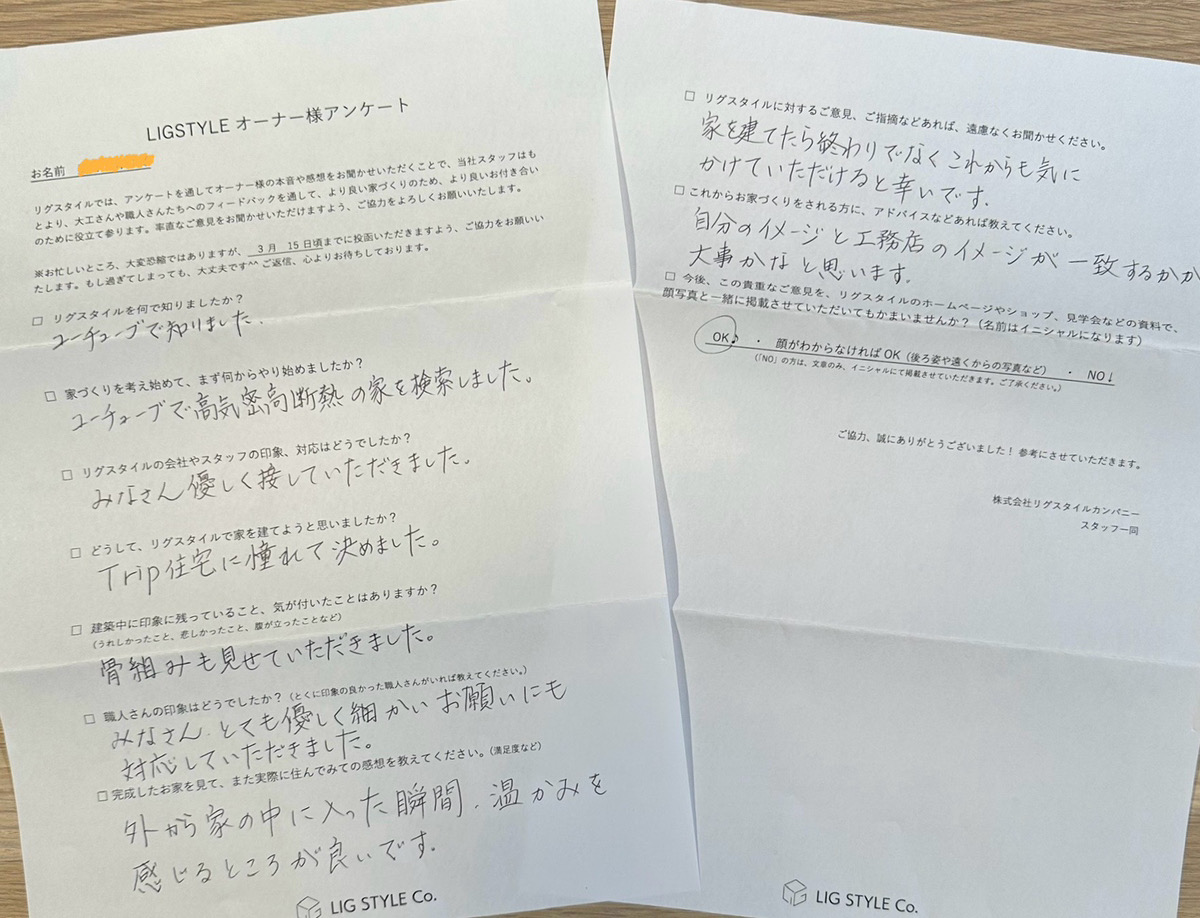 LIGSTYLE オーナー様アンケート
お名前
リグスタイルでは、アンケートを通してオーナー様の本音や感想をお聞かせいただくことで、当社スタッフはも
とより、大工さんや職人さんたちへのフィードバックを通して、より良い家づくりのため、より良いお付き合い
のために役立て参ります。率直なご意見をお聞かせいただけますよう、ご協力をよろしくお願いいたします。
※お忙しいところ、大変恐縮ではありますが、3月 15日頃までに投函いただきますよう、ご協力をお願いい
たします。もし過ぎてしまっても、大丈夫です^^ ご返信、心よりお待ちしております。
□ リグスタイルを何で知りましたか？
ユーチューブで知りました.
□ 家づくりを考え始めて、まず何からやり始めましたか？
ユーチューブで高気密高断熱の家を検索しました。
□ リグスタイルの会社やスタッフの印象、対応はどうでしたか？
みなさん優しく接していただきました。
□ どうして、リグスタイルで家を建てようと思いましたか？
Trip住宅に憧れて決めました。
□ 建築中に印象に残っていること、気が付いたことはありますか？
（うれしかったこと、悲しかったこと、腹が立ったことなど）
骨組みも見せていただきました。
□ 職人さんの印象はどうでしたか？（とくに印象の良かった職人さんがいれば教えてください。）
みなさん、とても優しく細かいお願いにも
対応していただきました。
□ 完成したお家を見て、また実際に住んでみての感想を教えてください。（満足度など）
外から家の中に入った瞬間、温かみを
感じるところが良いです.
LIG STYLE Co.
□ リグスタイルに対するご意見、ご指摘などあれば、遠慮なくお聞かせください。
家を建てたら終わりでなくこれからも気に
かけていただけると幸いです.
□ これからお家づくりをされる方に、アドバイスなどあれば教えてください。
自分のイメージと工務店のイメージが一致するかが
大事かなと思います.
□ 今後、この貴重なご意見を、リグスタイルのホームページやショップ、見学会などの資料で、
顔写真と一緒に掲載させていただいてもかまいませんか？（名前はイニシャルになります）
OK♪ ・ 顔がわからなければOK（後ろ姿や遠くからの写真など） ・ NO！
（「NO」の方は、文章のみ、イニシャルにて掲載させていただきます。ご了承ください。）
ご協力、誠にありがとうございました！ 参考にさせていただきます。
株式会社リグスタイルカンパニー
スタッフ一同
LIG STYLE Co.